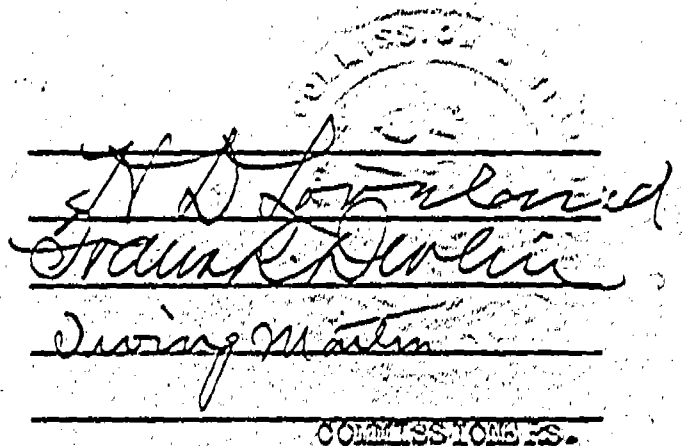 H D Loveland
Frank R. Devlin
Irving Martin
COMMISSIONERS.